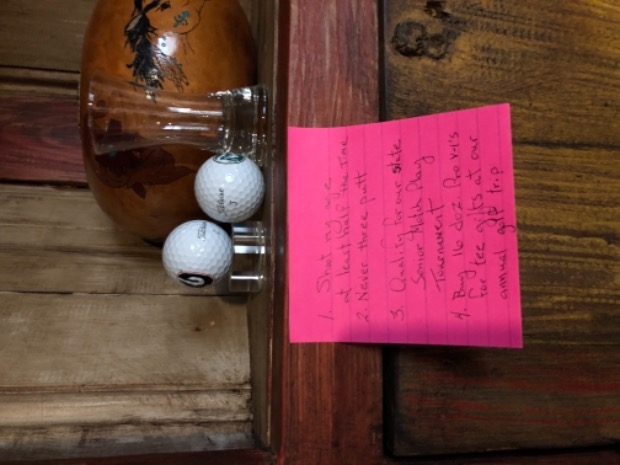 1. Shoot my age
at least half the time
2. Never three putt
3. Qualify for our state
Senior Match Play
Tournament
4. Buy 16 doz Pro V-1's
for tee gifts at our
annual golf trip
Titleist
Titleist
G